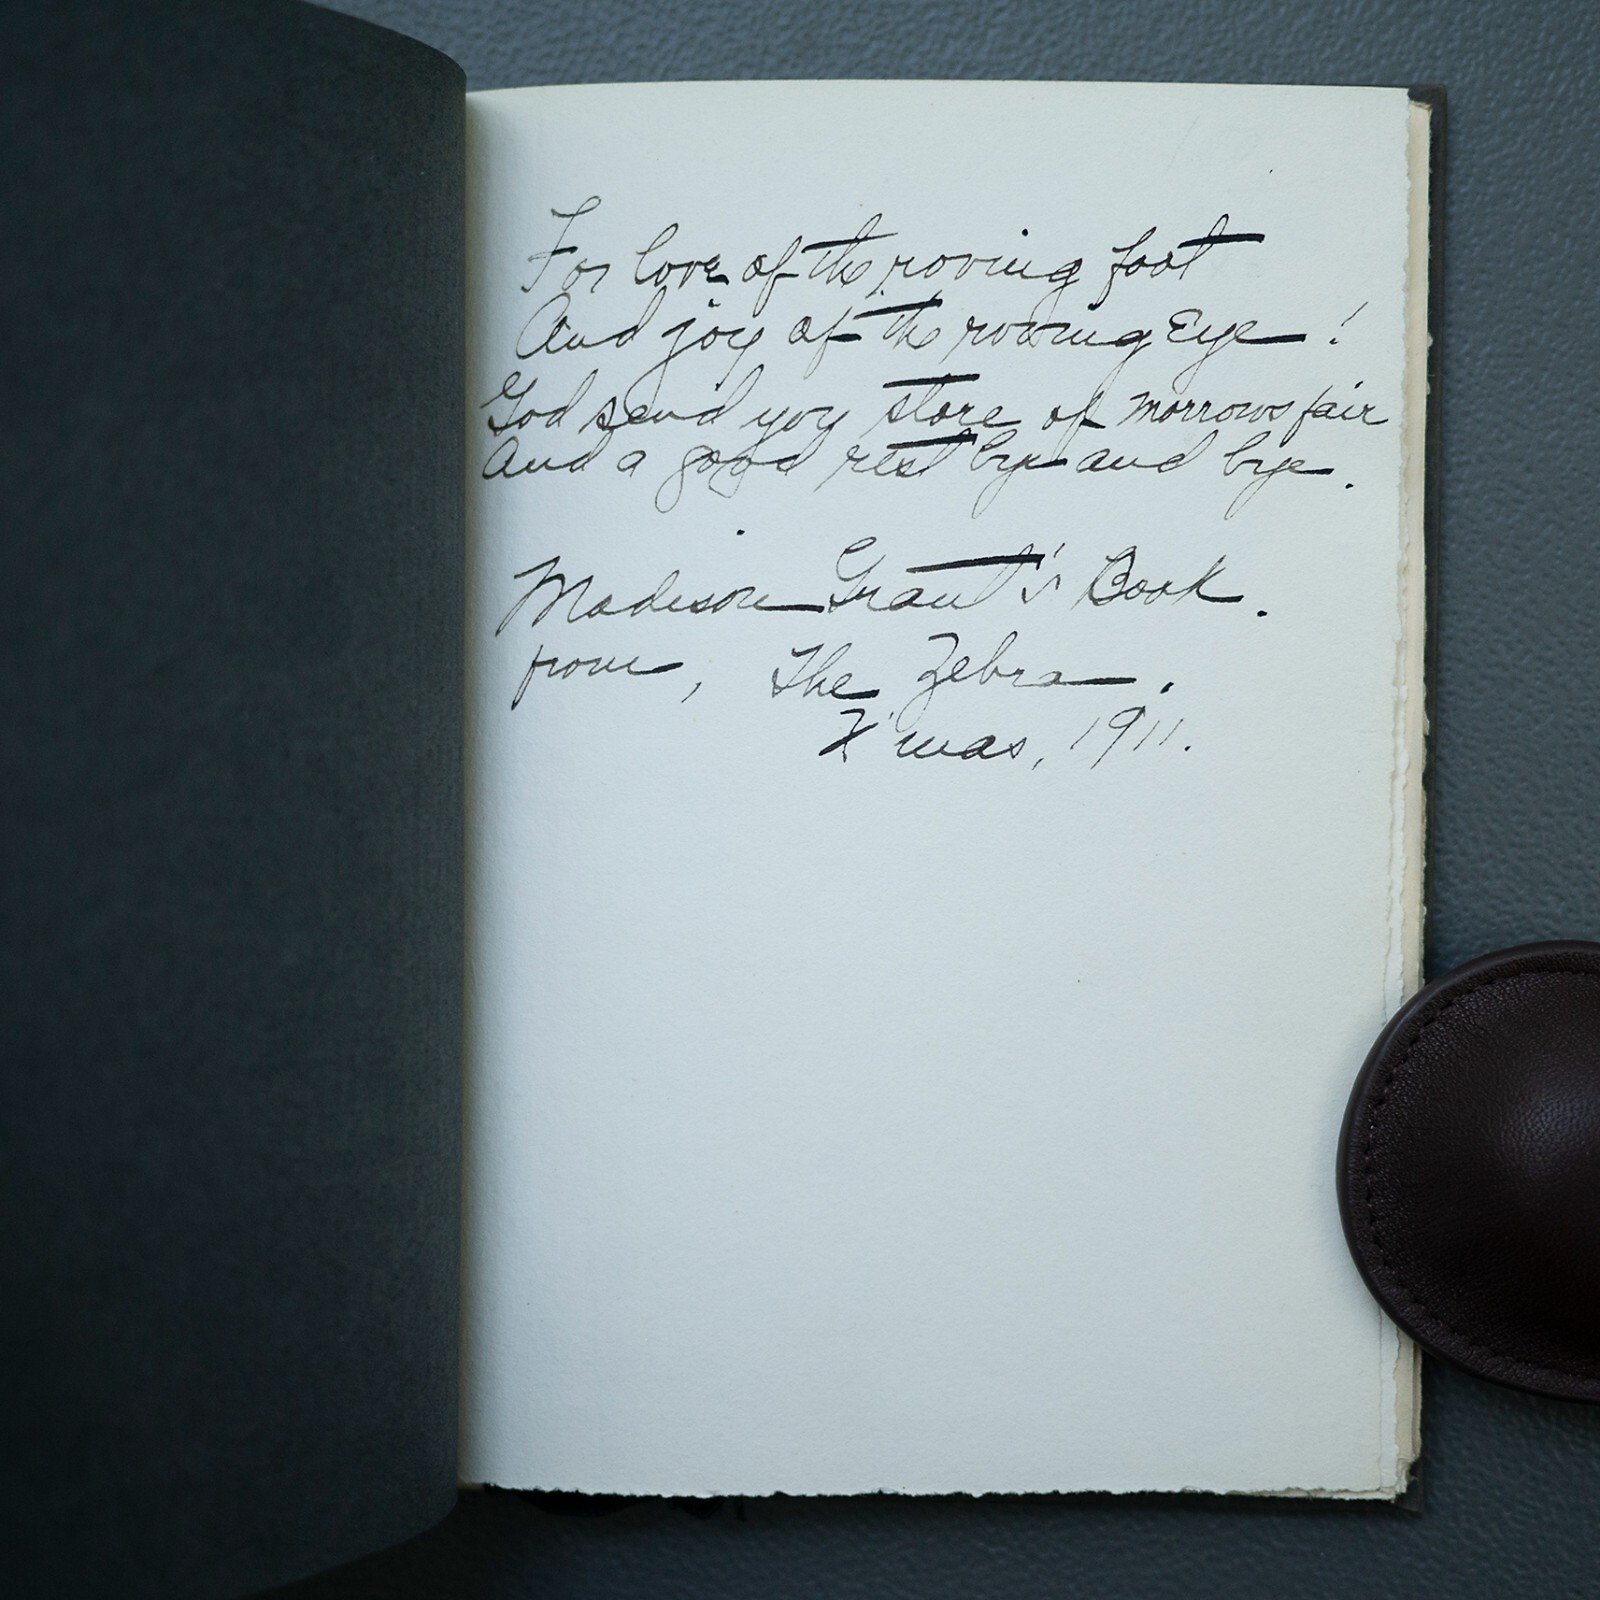 For love of the roving foot
And joy of the roving Eye!
God send you store of morrows fair
And a good rest bye and bye.
Madison Grant's Book.
from, The Zebra.
X'mas, 1911.